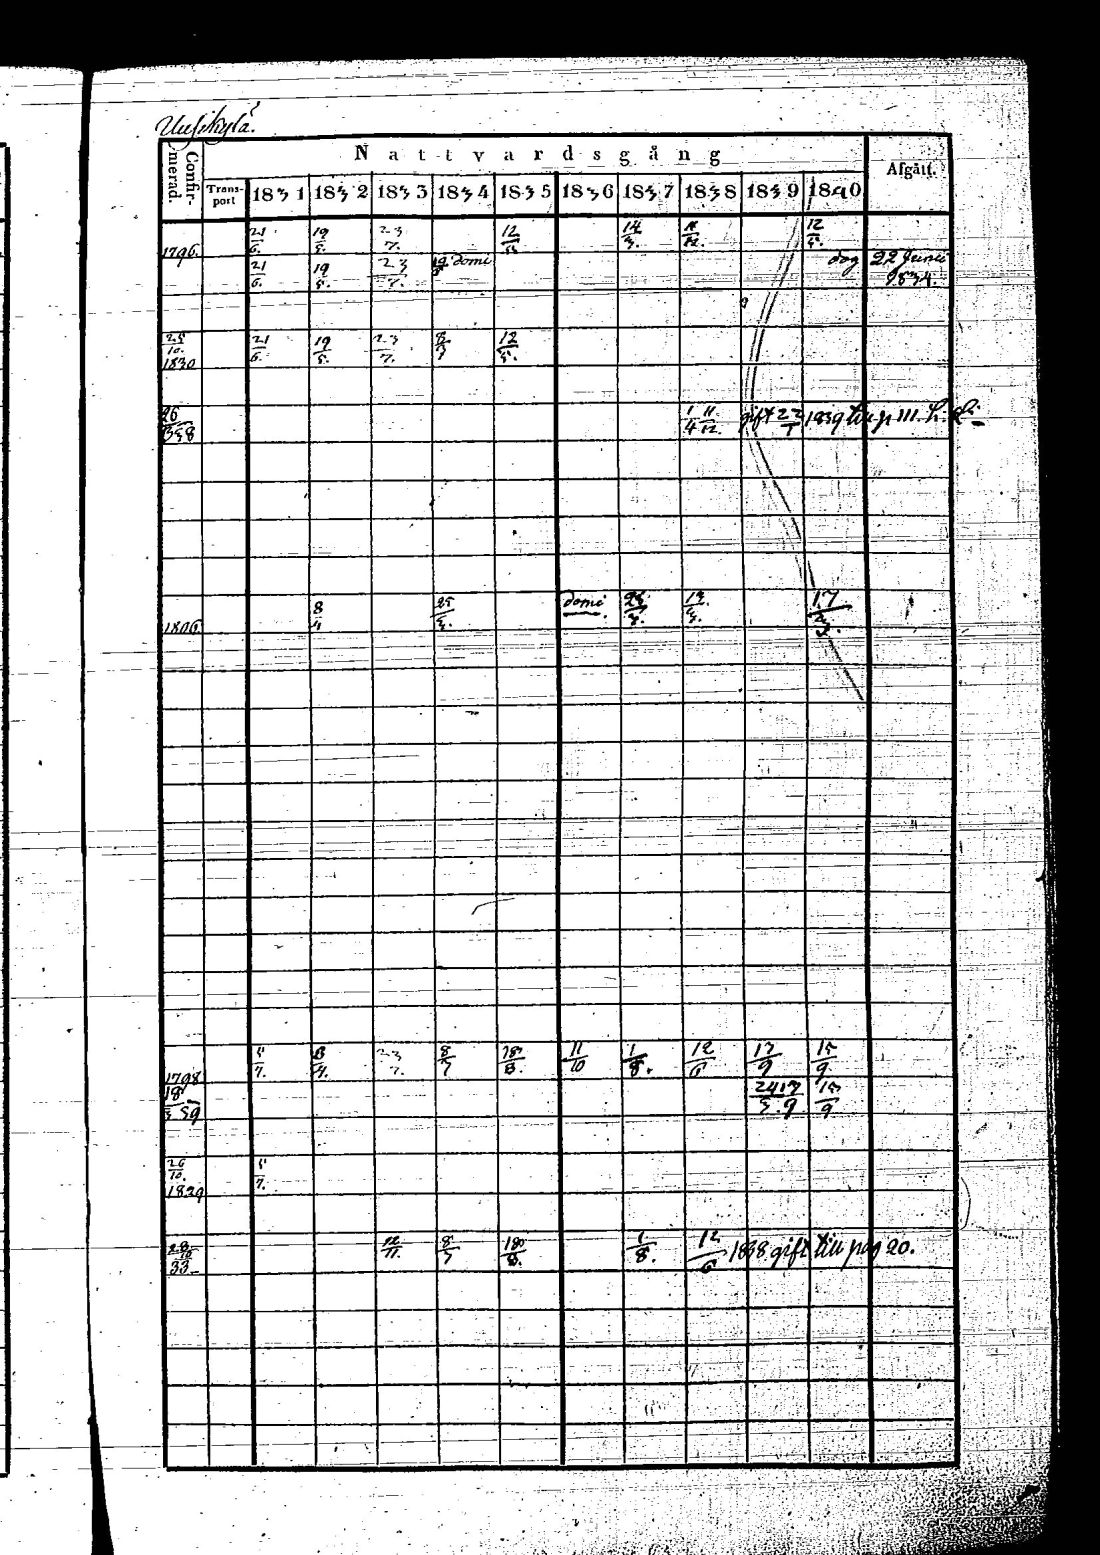 Uusikylä.
Confirmerad.
Nattvardsgång
Afgått.
Transport
1831 1832 1833 1834 1835 1836 1837 1838 1839 1840
21/6. 19/5. 23/7. 12/ 14/3. 11/12. 12/5.
1796.
21/6. 19/5. 23/7. domi dog 22 Junii
1834.
25/10. 1830 21/6. 19/5. 23/7. 12/5.
26 1/4 11/12. gift 22/1 1839 till p. 111.
1806. 8/4 25/3. domi. 13/3. 17/3.
1798 4/7. 8/7. 23/7. 8/7 18/8. 11/10 1/8. 12/6 13/9 15/9
18/3 39 24/3. 13/9 15/9
26/10. 1829 4/7.
28/10 33 12/11. 8/7 18/8. 1/8. 12/6 1838 gift till pag 20.